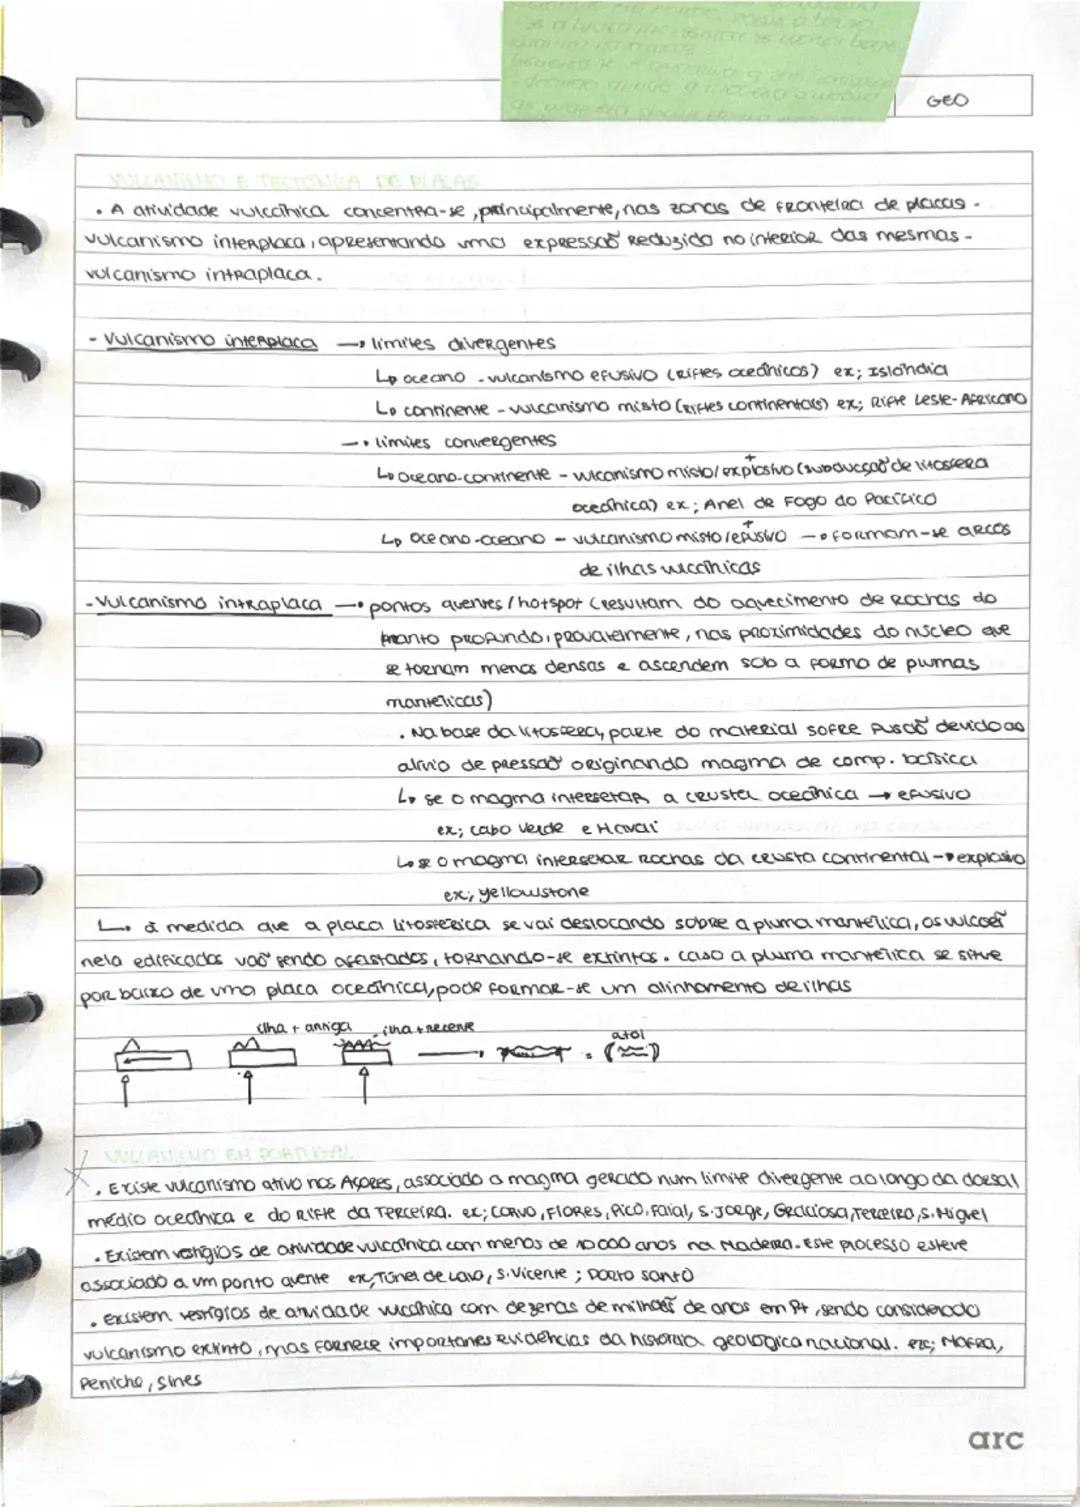 GEO
VULCANISMO E TECTÓNICA DE PLACAS
• A atividade vulcânica concentra-se, principalmente, nas zonas de fronteira de placas -
vulcanismo interplaca, apresentando uma expressão reduzida no interior das mesmas -
vulcanismo intraplaca.
- Vulcanismo interplaca → limites divergentes
↳ oceano - vulcanismo efusivo (riftes oceânicos) ex; Islândia
↳ continente - vulcanismo misto (riftes continentais) ex; Rifte Leste-Africano
→ limites convergentes
↳ oceano-continente - vulcanismo misto/explosivo+ (subducção de litosfera
oceânica) ex; Anel de Fogo do Pacífico
↳ oceano-oceano - vulcanismo misto/efusivo+ → formam-se arcos
de ilhas vulcânicas
- Vulcanismo intraplaca → pontos quentes/hotspot (resultam do aquecimento de rochas do
manto profundo, provavelmente, nas proximidades do núcleo que
se tornam menos densas e ascendem sob a forma de plumas
mantélicas)
. Na base da litosfera, parte do material sofre fusão devido ao
alívio de pressão originando magma de comp. básica
↳ se o magma intersetar a crusta oceânica → efusivo
ex; Cabo Verde e Havai
↳ se o magma intersetar rochas da crusta continental → explosivo
ex; yellowstone
↳ à medida que a placa litosférica se vai deslocando sobre a pluma mantélica, os vulcões
nela edificados vão sendo afastados, tornando-se extintos. caso a pluma mantélica se situe
por baixo de uma placa oceânica, pode formar-se um alinhamento de ilhas
ilha + antiga ilha + recente
atol
VULCANISMO EM PORTUGAL
. Existe vulcanismo ativo nos Açores, associado a magma gerado num limite divergente ao longo da dorsal
médio oceânica e do Rifte da Terceira. ex; Corvo, Flores, Pico, Faial, S. Jorge, Graciosa, Terceira, S. Miguel
. Existem vestígios de atividade vulcânica com menos de 10 000 anos na Madeira. Este processo esteve
associado a um ponto quente ex; Túnel de Lava, S. Vicente ; Porto Santo
. existem vestígios de atividade vulcânica com dezenas de milhões de anos em Pt, sendo considerado
vulcanismo extinto, mas fornece importantes evidências da história geológica nacional. ex; Mafra,
Peniche, Sines
arc